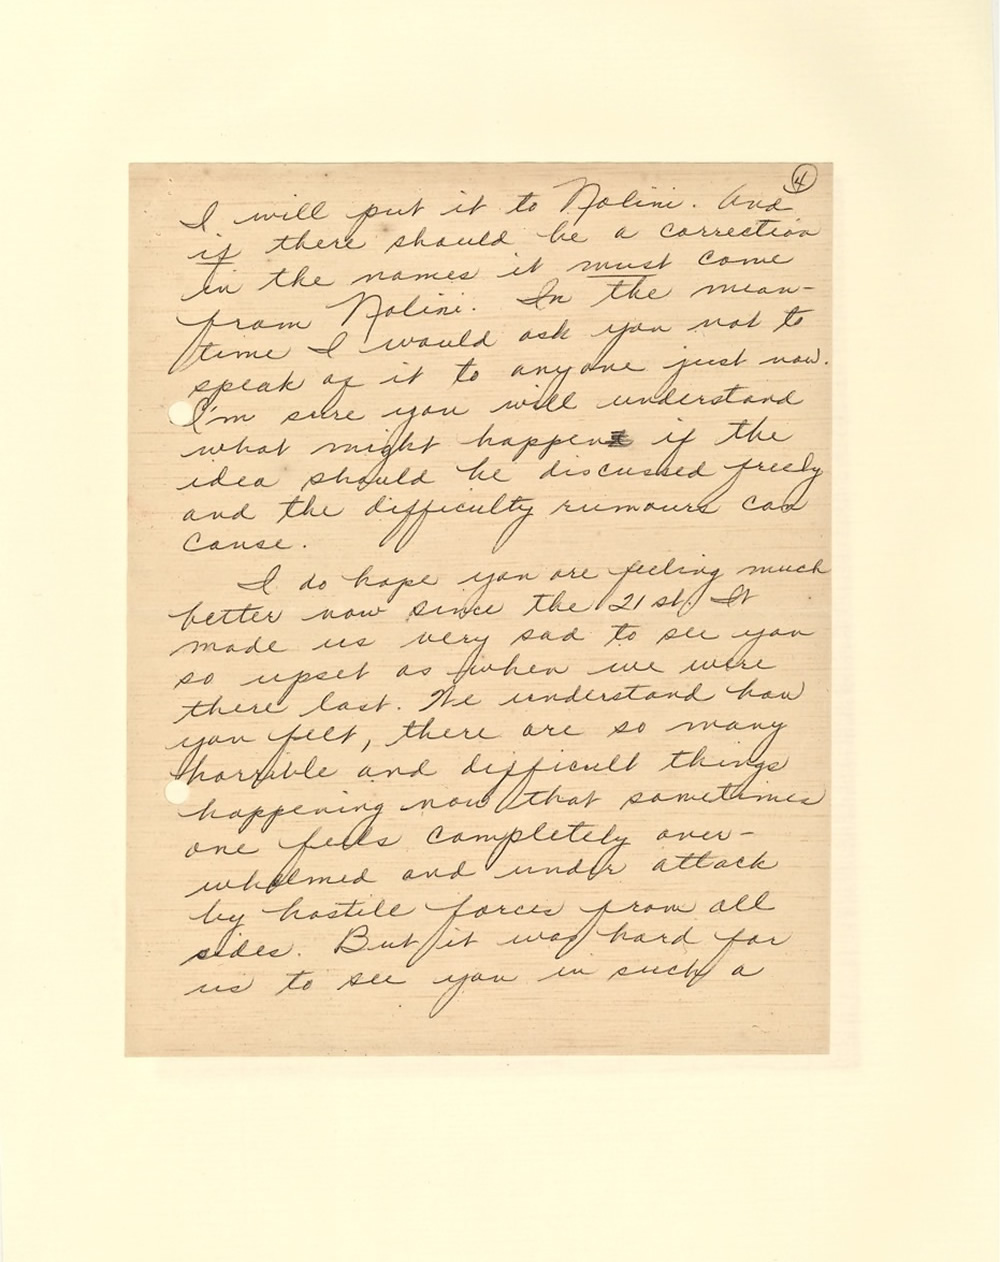 4
I will put it to Nolini. And
if there should be a correction
in the names it must come
from Nolini. In the mean-
time I would ask you not to
speak of it to anyone just now.
I'm sure you will understand
what might happen if the
idea should be discussed freely
and the difficulty rumours can
cause.
I do hope you are feeling much
better now since the 21st. It
made us very sad to see you
so upset as when we were
there last. We understand how
you felt, there are so many
horrible and difficult things
happening now that sometimes
one feels completely over-
whelmed and under attack
by hostile forces from all
sides. But it was hard for
us to see you in such a